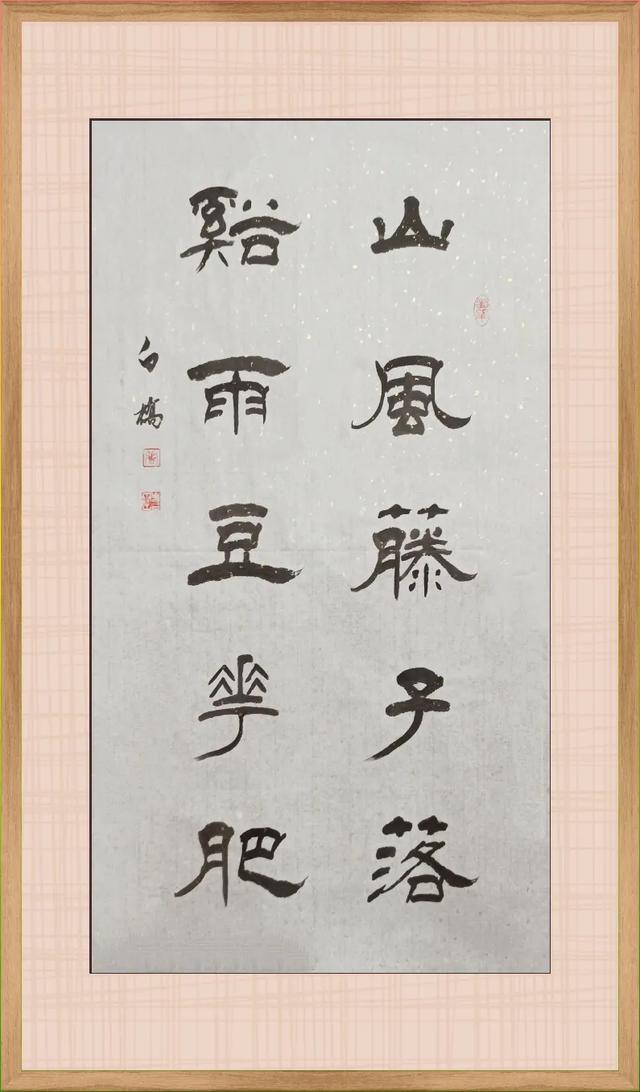 山風藤子落
谿雨豆花肥
白橋